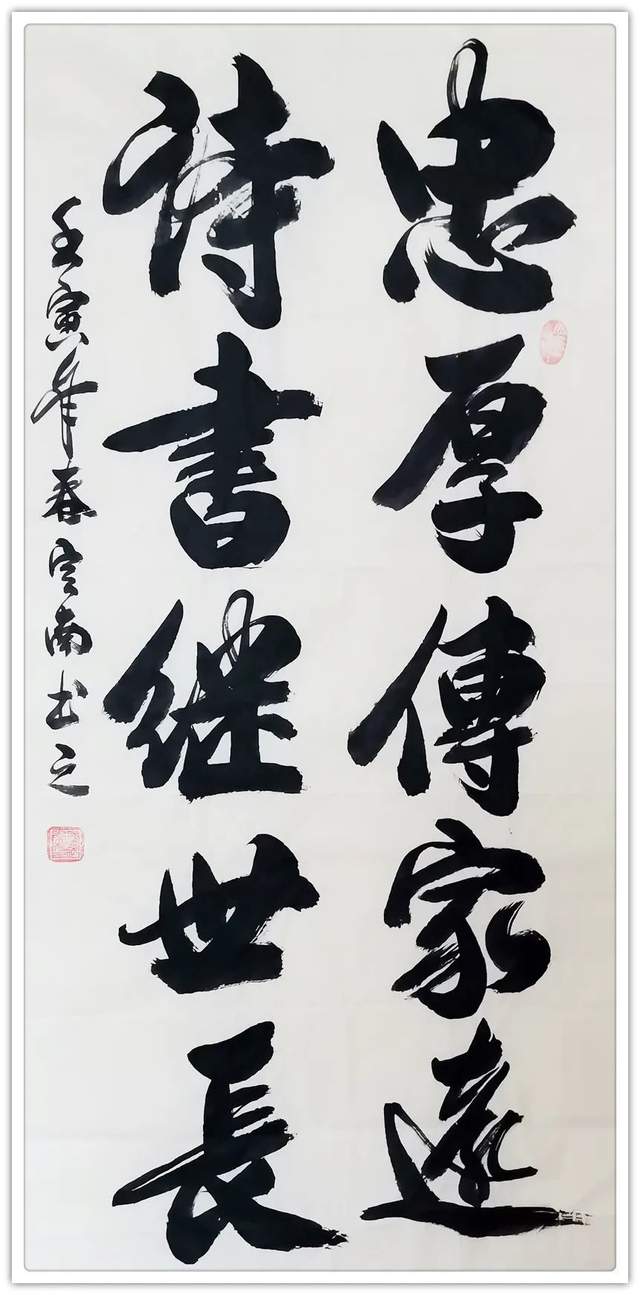 忠厚傳家遠
詩書继世長
壬寅年春宏南书之